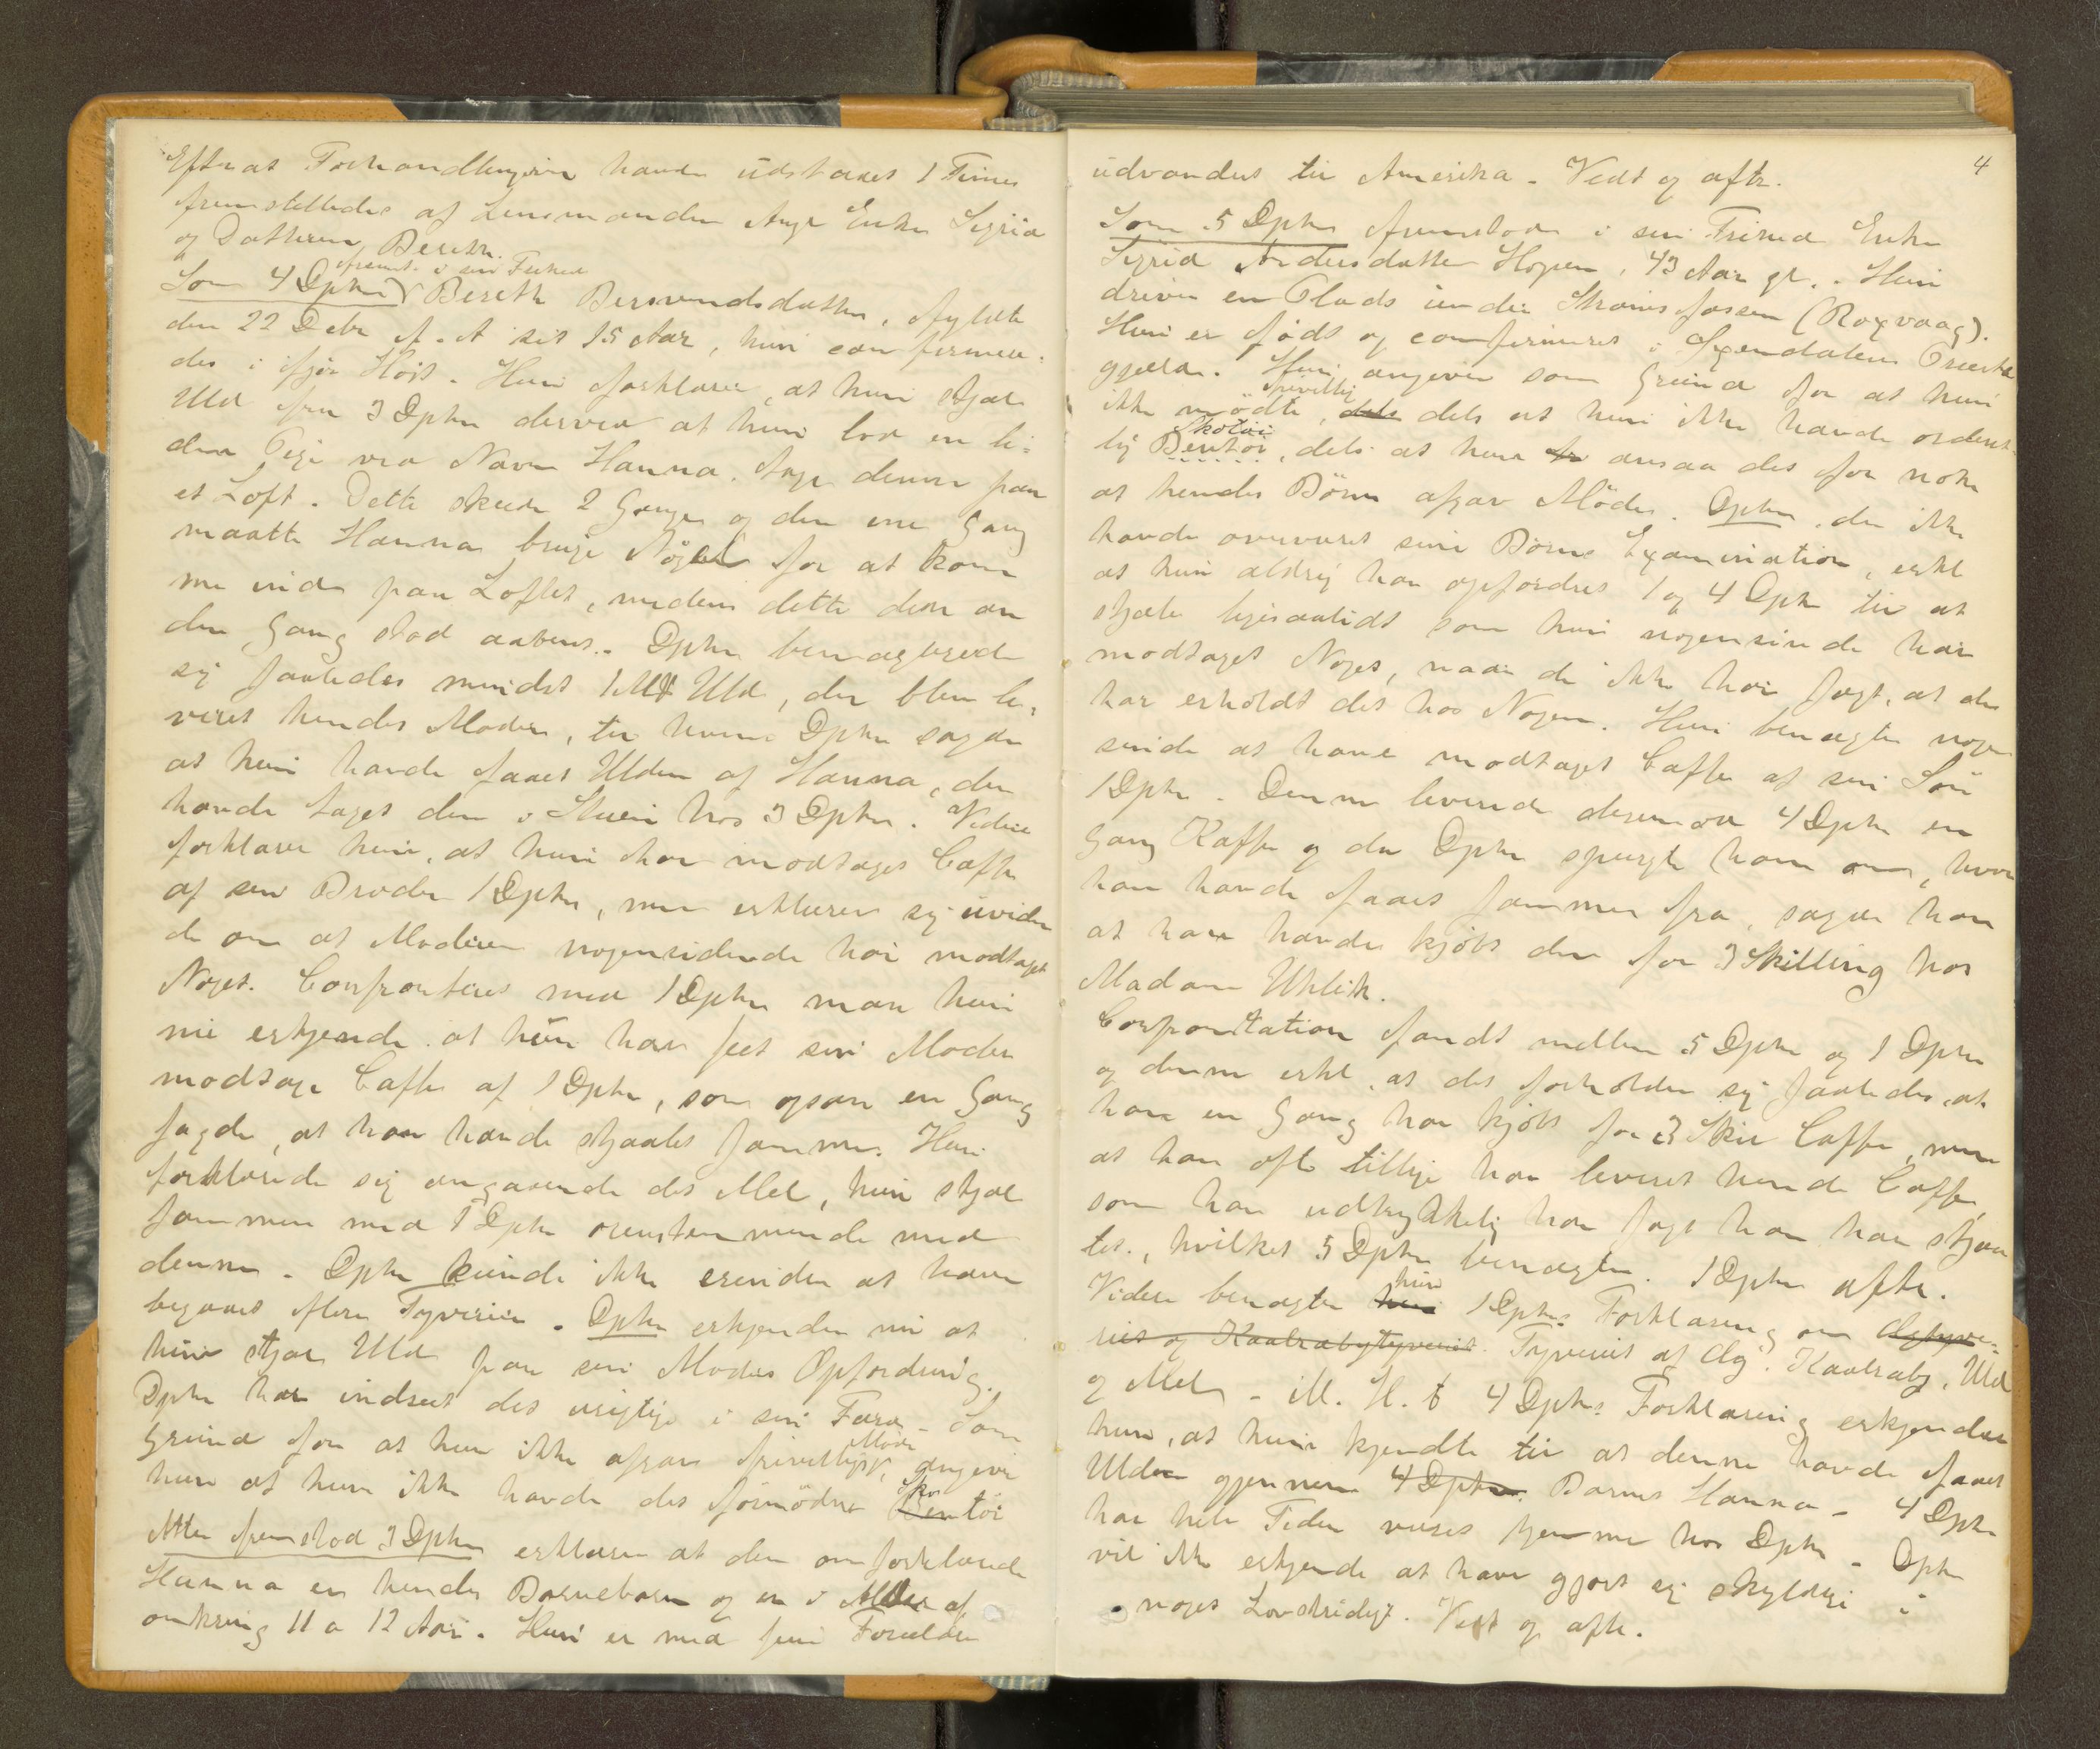 Efterat Forhandlingerne havde udstaaet 1 Times
fremstilledes af Lensmanden Ange Enke Sigrid
og Datteren Bereth.
fremst. i sin Frihed
Som 4 Dpkn Bereth Bersvendsdatter, fyldte
den 22 Debr f. A sit 15 Aar, hun confirmere-
des i fjor Høst. Hun forklarer, at hun stjal
Uld fra 3 Dptn derved at hun lod en li-
den Pige ved Navn Hanna tage denne paa
et Loft. Dette skede 2 Gange og den ene Gang
maatte Hanna bruge Nøgel for at kom
me ind paa Loftet, medens dette den an
den Gang stod aabent. Dptn bemægtigede
sig saaledes mindst 1 Mk Uld, der blev le-
veret hendes Moder, til hvem Dptn sagde
at hun havde faaet Ulden af Hanna, der
havde taget den i Stuen hos 3 Dptn. Videre
forklarer hun, at hun har modtaget Caffe
af sin Broder 1 Dptn, men erklærer sig uviden
de om at Moderen nogensinde har modtaget
Noget. Confronteret med 1 Dptn maa hun
nu erkjende at hun har seet sin Moder
modtage Caffe af 1 Dptn, som ogsaa en Gang
sagde, at han havde stjaalet samme. Hun
forklarede sig angaaende det Mel, hun stjal
sammen med 1 Dptn overstemmende med
denne. Dptn kunde ikke erindre at have
begaaet flere Tyverier. Dptn erkjender nu at
hun stjal Uld paa sin Moders Opfordring.
Dptn har indseet det urigtige i sin Færd. Som
Grund for at hun ikke afgav frivilligt Møde, angiver
hun at hun ikke havde det fornødne Skotøi
Atter fremstod 3 Dptn erklærer at den omforklarede
Hanna er hendes Barnebarn og en i Alder af
omkring 11 a 12 Aar. Hun er med sine Forældre
4
udvandret til Amerika. Vedt og aftr.
Som 5 Dptn fremstod i sin Frihed Enke
Sigrid Andersdatter Hopen, 43 Aar gl. Hun
driver en Plads under Strømsfossen (Roxvaag).
Hun er født og confirmeret i Øxendalens Præste
gjeld. Hun angiver som Grund for at hun
ikke mødte frivillig, dels dels at hun ikke havde ordent-
lig Skotøi Bentøi, dels at hun ansaa det for nok
at hendes Børn afgav Møde. Dptn, der ikke
havde overværet sine Børns Examination, erkl
at hun aldrig har opfordret 1 og 4 Dptn til at
stjæle ligesaalidt som hun nogensinde har
modtaget Noget, naar de ikke har sagt, at de
har erholdt det hos Nogen. Hun benægter nogen
sinde at have modtaget Caffe af sin Søn
1 Dptn. Denne leverede derimod 4 Dptn en
Gang Kaffe og da Dptn spurgte ham om, hvor
han havde faaet sammen fra, sagde han
at han havde kjøbt den for 3 Skilling hos
Madam Uhleth.
Confrontation fandt mellem 5 Dptn og 1 Dptn
og denne erkl. at det forholder sig saaledes, at
han en Gang har kjøbt for 3 Skill Caffe, men
at han ofte tillige har leveret hende Caffe,
som han udtrykkelig har sagt han har stjaa
let., hvilket 5 Dptn benægter. 1 Dptn aftr.
Videre benægter hun 1 Dptns Forklaring om
riet og Kaalrabytyveriet. Tyveriet af Æg. Kaalraby, Uld
og Mel - M. H. t 4 Dptns Forklaring erkjender
hun, at hun kjendte til at denne havde faaet
Ulden gjennem 4 Dptn. Barnet Hanna - 4 Dptn
har hele Tiden været hjemme hos Dptn - Dptn
vil ikke erkjende at have gjort sig skyldig i
noget Lovstridigt. Vedt og aftr.